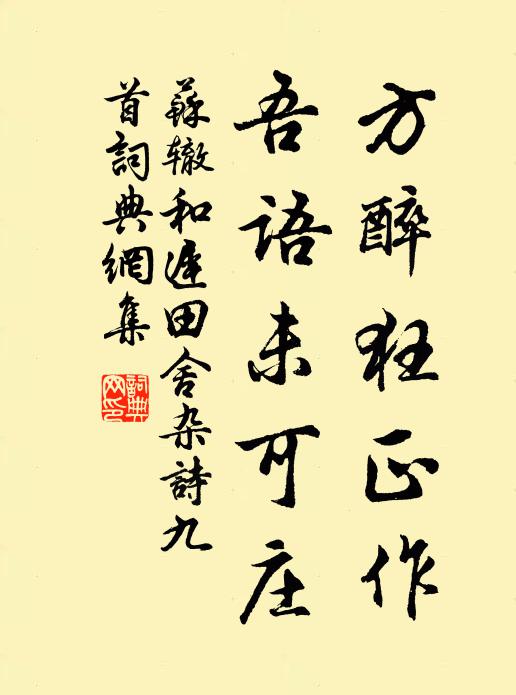 方醉狂正作
吾语未可庄
蘇辙和遲田舍杂詩九
首詞典網集
詞典
网印